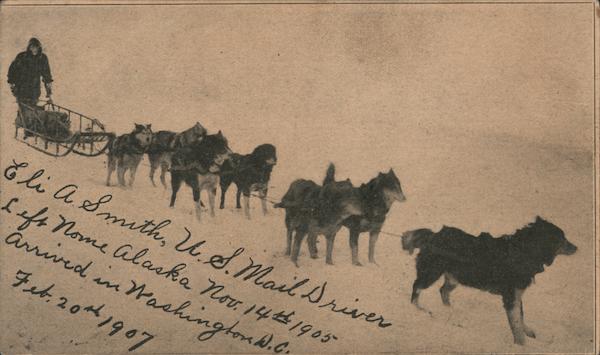 Eli A Smith, U. S. Mail Driver
Left Nome Alaska Nov. 14th 1905
Arrived in Washington D.C.
Feb. 20th 1907